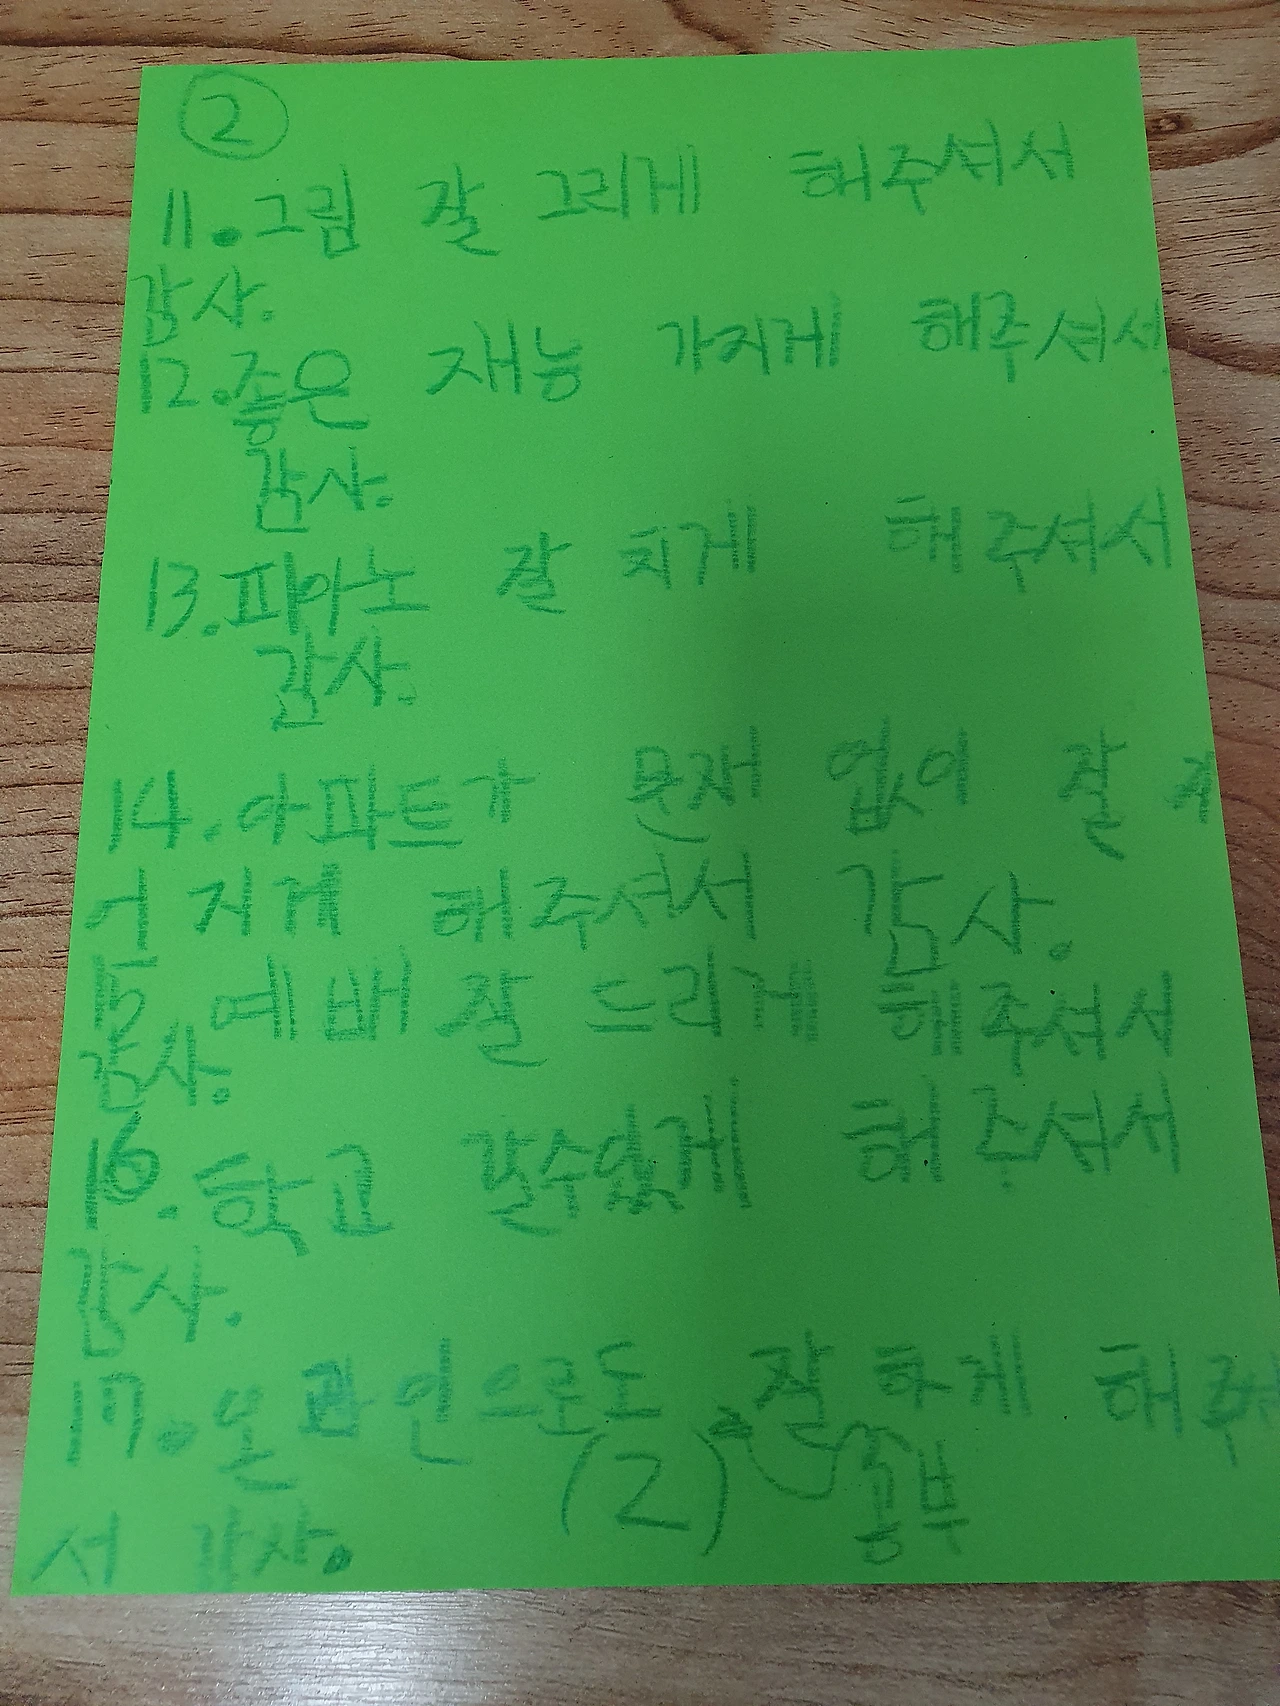 ②
11.그림 잘 그리게 해주셔서
감사.
12.좋은 재능 가지게 해주셔서
감사.
13.피아노 잘 치게 해주셔서
감사.
14.아파트가 문재 없이 잘
어 지게 해주셔서 감사.
15. 예배 잘 드리게 해주셔서
감사.
16.학교 갈수있게 해주셔서
감사.
17.온 으로도 잘 하게 해주
(2) 공부
서 감사.